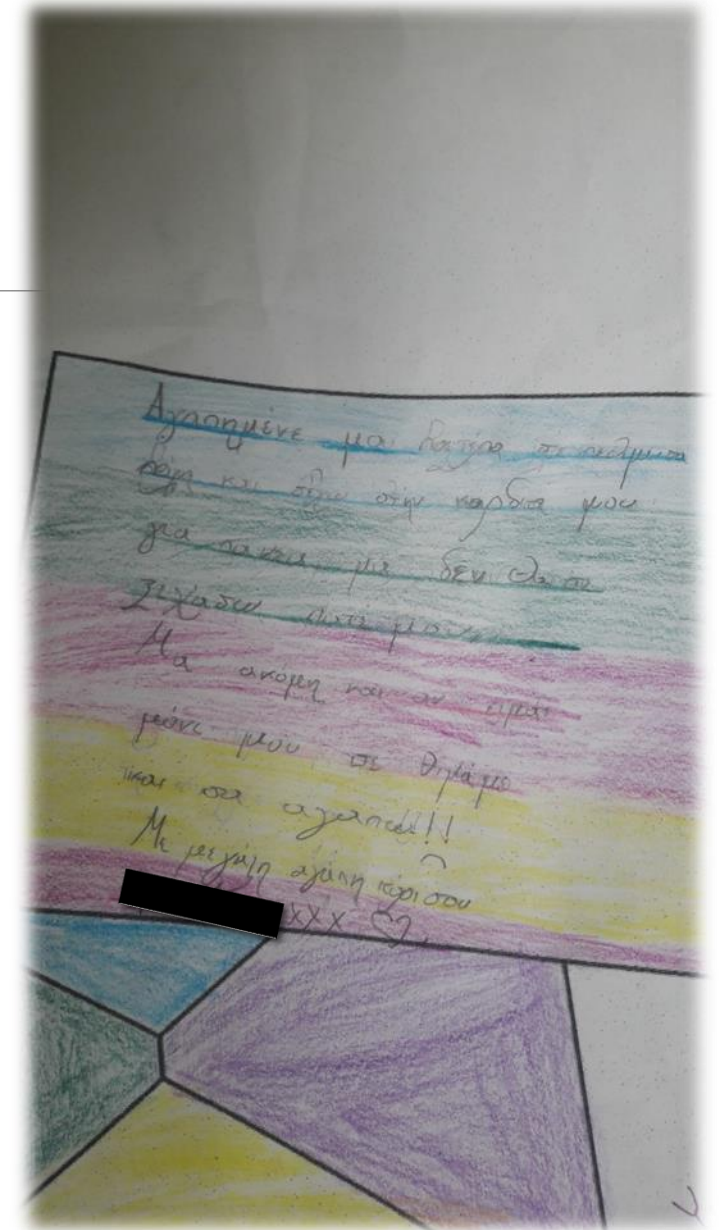 Αγαπημένε μου πατέρα σε
και στην καρδιά μου
για πάντα με δεν θα σε
ξεχάσω ποτέ μου
Μα ακόμη και αν είμαι
μου σε θημάμε
και σα αγαπώ!!!
Με μεγάλη αγάπη κόρι σου
xxx ♡